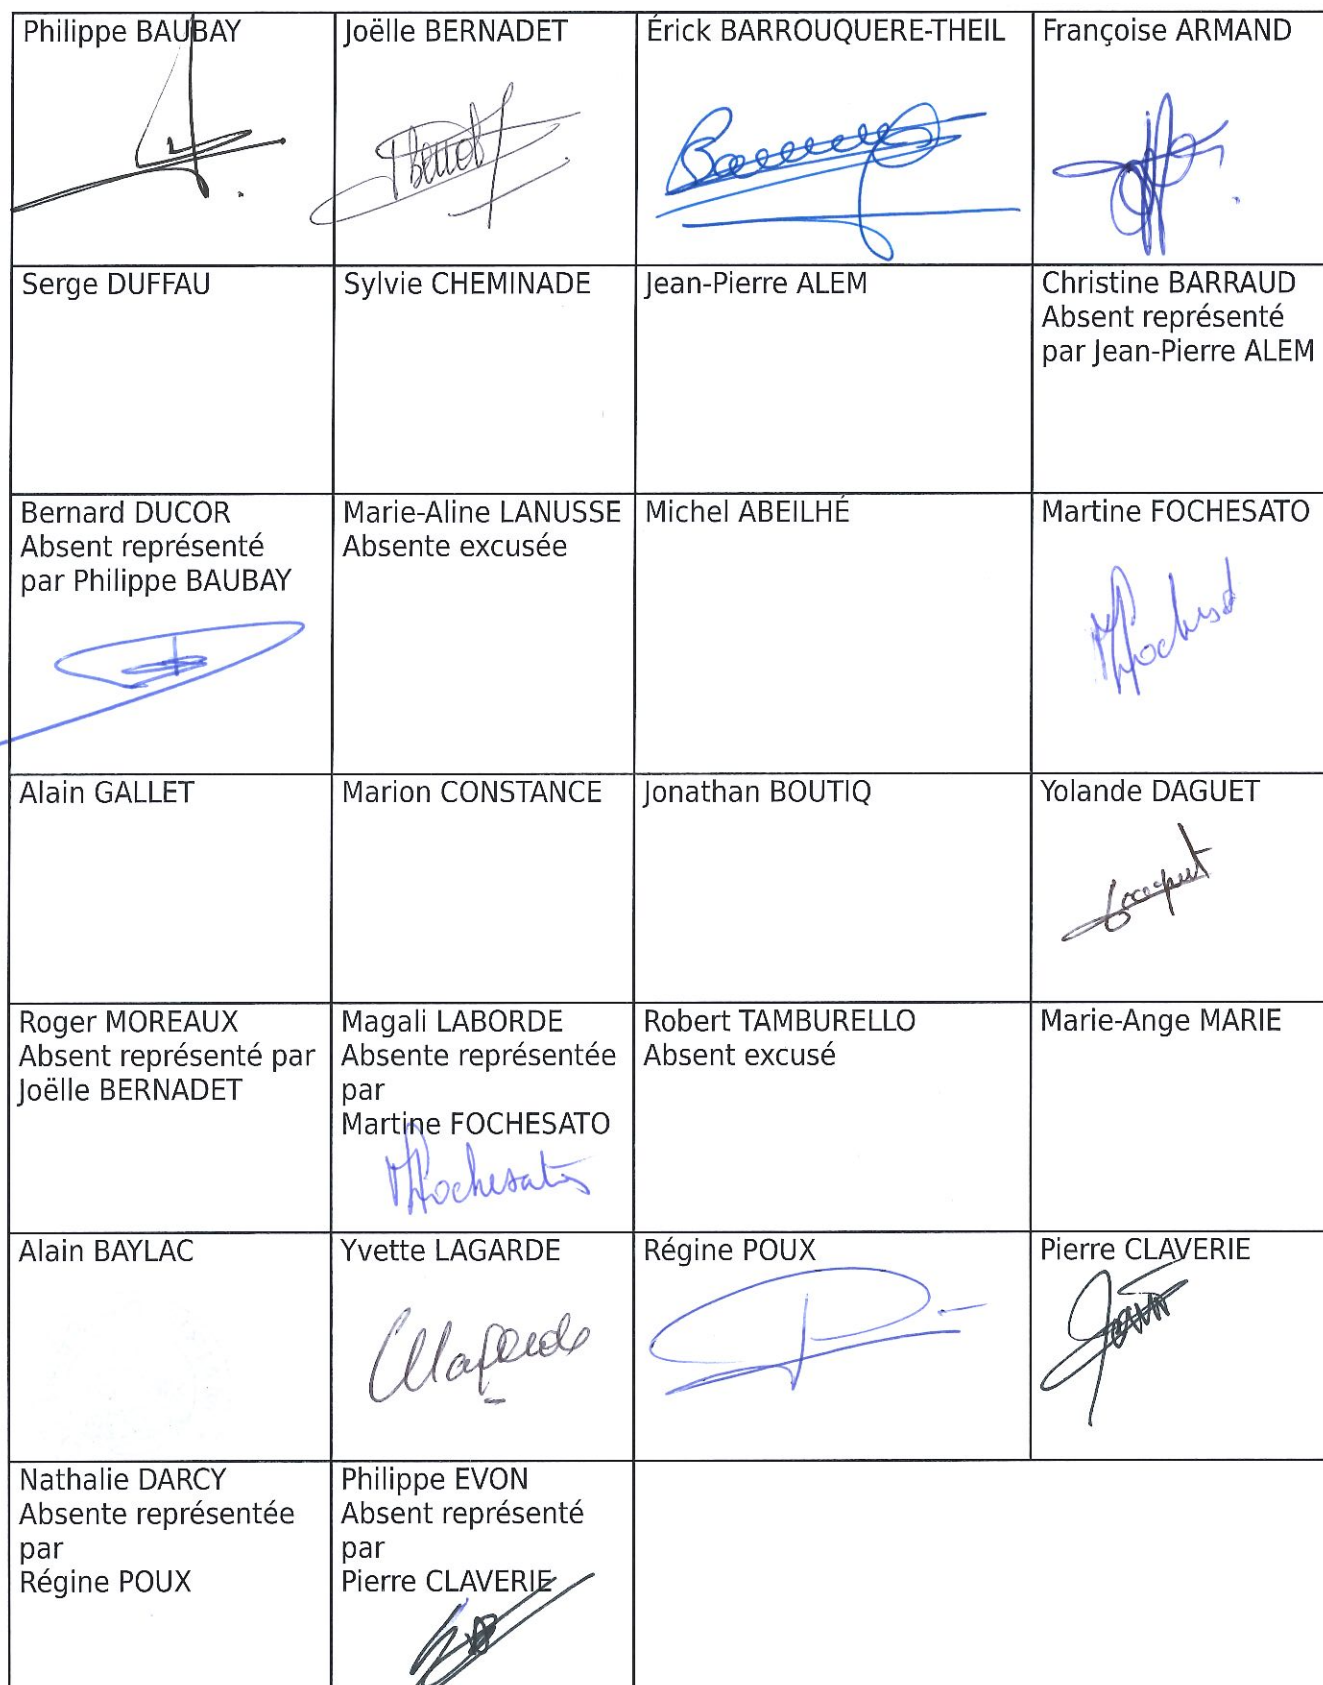 Philippe BAUBAY
Joëlle BERNADET
Érick BARROUQUERE-THEIL
Françoise ARMAND
Serge DUFFAU
Sylvie CHEMINADE
Jean-Pierre ALEM
Christine BARRAUD
Absent représenté
par Jean-Pierre ALEM
Bernard DUCOR
Absent représenté
par Philippe BAUBAY
Marie-Aline LANUSSE
Absente excusée
Michel ABEILHÉ
Martine FOCHESATO
Alain GALLET
Marion CONSTANCE
Jonathan BOUTIQ
Yolande DAGUET
Roger MOREAUX
Absent représenté par
Joëlle BERNADET
Magali LABORDE
Absente représentée
par
Martine FOCHESATO
Robert TAMBURELLO
Absent excusé
Marie-Ange MARIE
Alain BAYLAC
Yvette LAGARDE
Régine POUX
Pierre CLAVERIE
Nathalie DARCY
Absente représentée
par
Régine POUX
Philippe EVON
Absent représenté
par
Pierre CLAVERIE